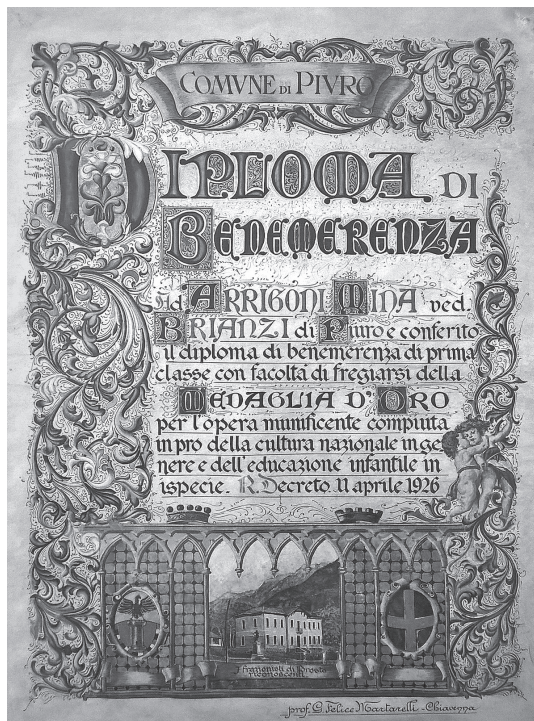 COMVNE DI PIVRO
DIPLOMA DI
BENEMERENZA
Ad ARRIGONI MINA ved.
BRIANZI di Piuro e conferito
il diploma di benemerenza di prima
classe con facoltà di fregiarsi della
MEDAGLIA D'ORO
per l'opera munificente compiuta
in pro della cultura nazionale in ge
nere e dell'educazione infantile in
ispecie. R. Decreto 11 aprile 1926
I frazionisti di Prosto
riconoscenti
prof. G. Felice Martarelli - Chiavenna